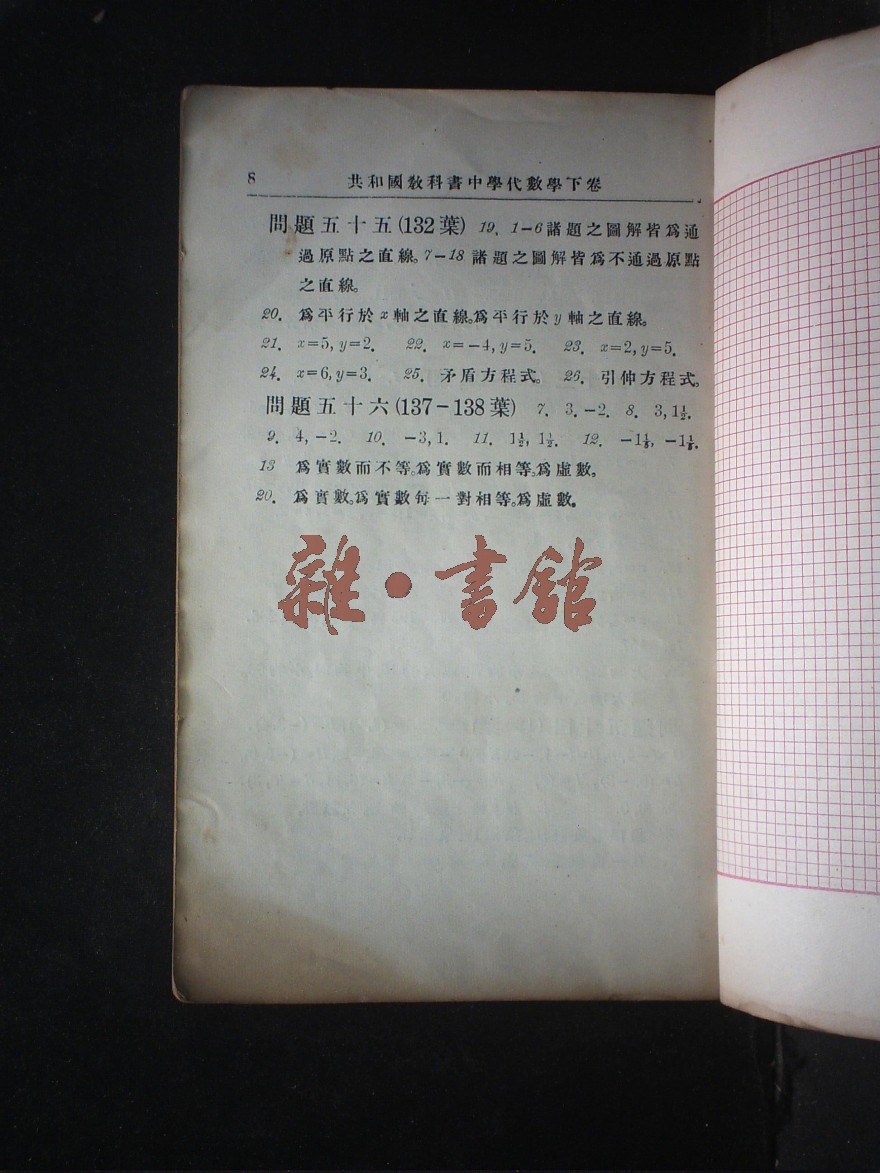 8 共和國敎科書中學代數學下卷
問題五十五(132葉) 19. 1-6諸題之圖解皆爲通
過原點之直線。7-18 諸題之圖解皆爲不通過原點
之直線。
20. 爲平行於x軸之直線。爲平行於y軸之直線。
21. x=5, y=2. 22. x=-4, y=5. 23. x=2, y=5.
24. x=6, y=3. 25. 矛盾方程式。 26. 引伸方程式。
問題五十六(137-138葉) 7. 3. -2. 8. 3, 1½.
9. 4, -2. 10. -3, 1. 11. 1½, 1½. 12.
13 爲實數而不等。爲實數而相等。爲虛數。
20. 爲實數。爲實數每一對相等。爲虛數。
雜·書館